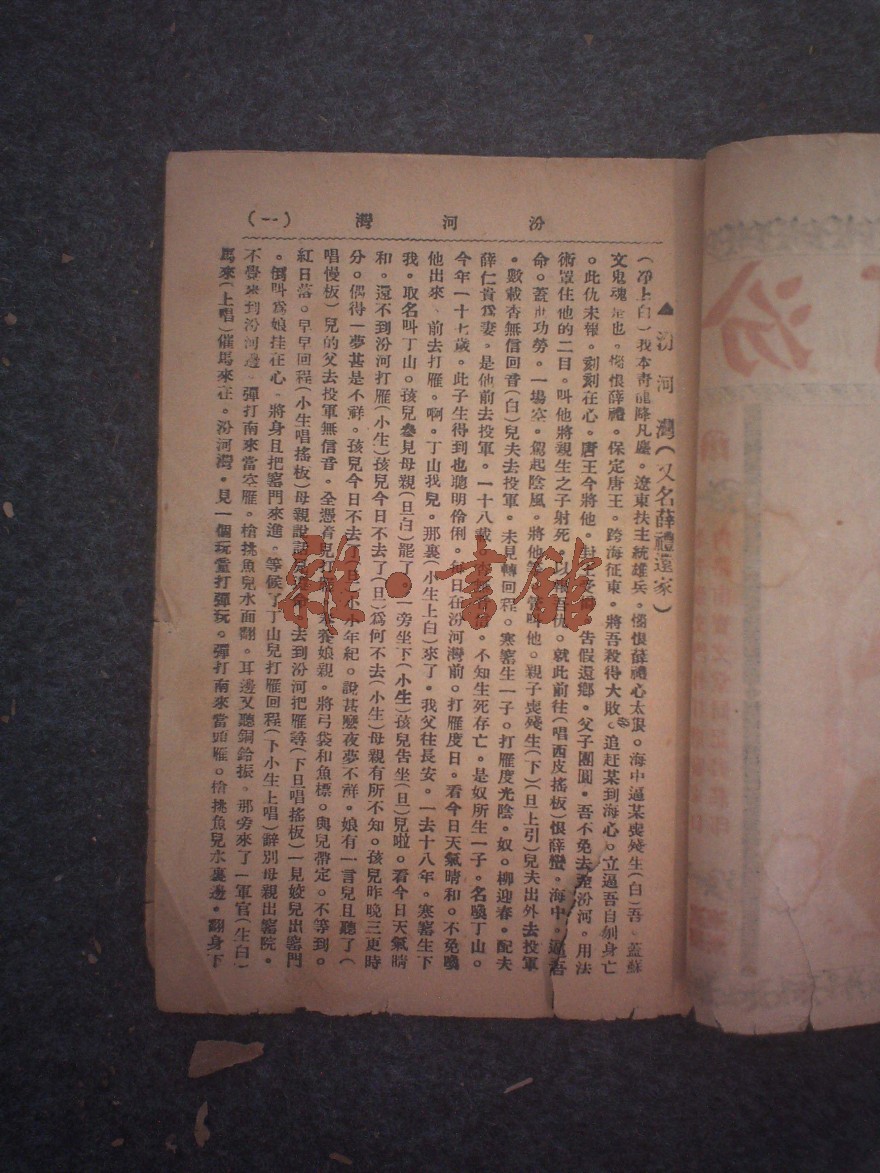 汾河灣 (一)
▲汾河灣(又名薛禮還家)
(净上白)我本靑龍降凡塵。遼東扶主統雄兵。惱恨薛禮心太狠。海中逼某喪殘生(白)吾。蓋蘇
文鬼魂是也。惱恨薛禮。保定唐王。跨海征東。將吾殺得大敗。追赶某到海心。立逼吾自刎身亡
。此仇未報。刻刻在心。唐王今將他。封王。告假還鄉。父子團圓。吾不免去至汾河。用法
術罩住他的二目。叫他將親生之子射死。以報吾仇。就此前往(唱西皮搖板)恨薛蠻。海中。逼吾
命。蓋世功勞。一場空。駕起陰風。將他等。管叫他。親子喪殘生(下)(旦上引)兒夫出外去投軍
。數載杳無信回音(白)兒夫去投軍。未見轉回程。寒窰生一子。打雁度光陰。奴。柳迎春。配夫
薛仁貴爲妻。是他前去投軍。一十八載。杳無音信。不知生死存亡。是奴所生一子。名喚丁山。
今年一十七歲。此子生得到也聰明伶俐。每日在汾河灣前。打雁度日。看今日天氣晴和。不免喚
他出來。前去打雁。啊。丁山我兒。那裏(小生上白)來了。我父往長安。一去十八年。寒窰生下
我。取名叫丁山。孩兒參見母親(旦白)罷了。一旁坐下(小生)孩兒告坐(旦)兒啦。看今日天氣晴
和。還不到汾河打雁(小生)孩兒今日不去了(旦)爲何不去(小生)母親有所不知。孩兒昨晚三更時
分。偶得一夢甚是不祥。孩兒今日不去了(旦)小小年紀。說甚麽夜夢不祥。娘有一言兒且聽了(
唱慢板)兒的父去投軍無信音。全憑着兒打雁。來養娘親。將弓袋和魚標。與兒帶定。不等到。
紅日落。早早回程(小生唱搖板)母親說話兒遵命。去到汾河把雁尋(下旦唱搖板)一見姣兒出窰門
。倒叫爲娘挂在心。將身且把窰門來進。等候了丁山兒打雁回程(下小生上唱)辭別母親出窰院。
不覺來到汾河邊。彈打南來當空雁。槍挑魚兒水面翻。耳邊又聽銅鈴振。那旁來了一軍官(生白)
馬來(上唱)催馬來在。汾河灣。見一個玩童打彈玩。彈打南來當頭雁。槍挑魚兒水裏邊。翻身下
雜·書館
汾